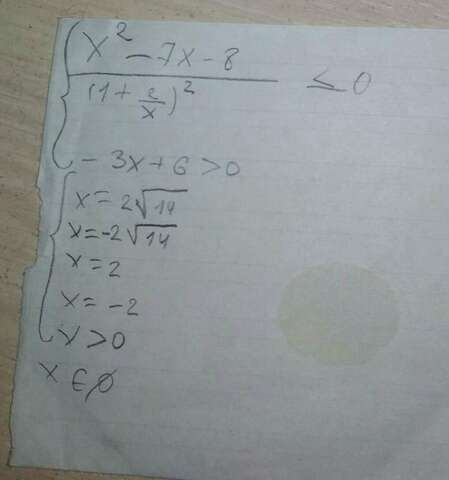 x² - 7x - 8
(1 + 2/x)² ≤ 0
- 3x + 6 > 0
x = 2√14
x = -2√14
x = 2
x = -2
x > 0
x ∈ ∅